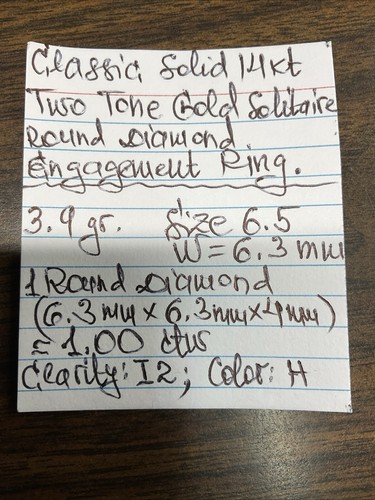 Classic Solid 14kt
Two Tone Gold Solitaire
Round Diamond
Engagement Ring.
3.9 gr. Size 6.5
W = 6.3 mm
1 Round Diamond
(6.3 mm x 6.3mm x 4mm)
≈ 1.00 ctw
Clarity: I2; Color: H